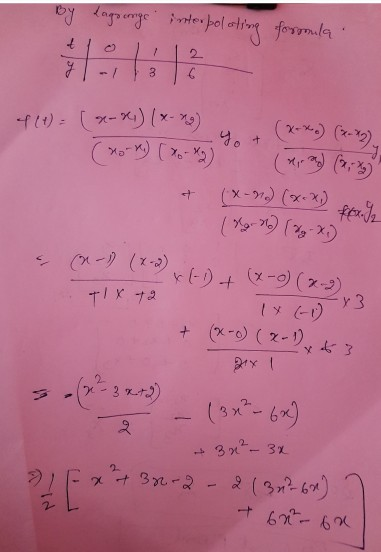 By lagrange interpolating formula.
t | 0 | 1 | 2
y | -1 | 3 | 6
f(t) = (x-x1)(x-x2) / (x0-x1)(x0-x2) y0 + (x-x0)(x-x2) / (x1-x0)(x1-x2) y1
+ (x-x0)(x-x1) / (x2-x0)(x2-x1) y2
= (x-1)(x-2) / +1x+2 x(-1) + (x-0)(x-2) / 1x(-1) x3
+ (x-0)(x-1) / 2x1 x 6 3
= -(x²-3x+2) / 2 - (3x²-6x)
+ 3x²-3x
⇒ 1/2 [-x²+3x-2 - 2(3x²-6x)
+ 6x²-6x]